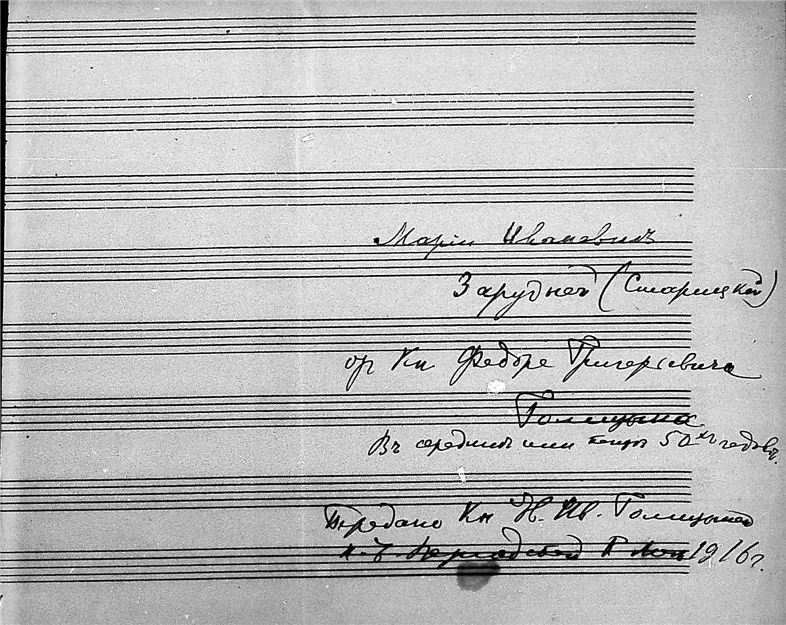 Маріи Ивановнѣ
Зарудной (Старицкой)
от Кн Федора Григорьевича
Голицына
Въ серединѣ или концѣ 50хъ годовъ.
Передано Кн Н. Ив. Голицыной
1916 г.